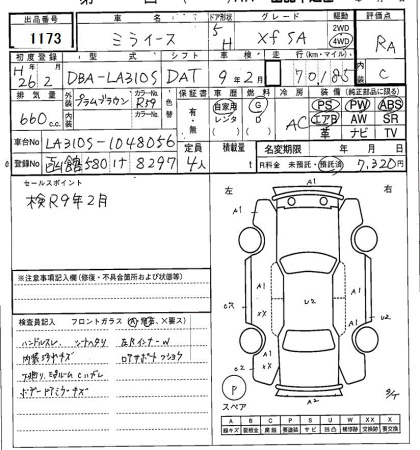 出品番号 車名 ドア形状 グレード 駆動 評価点
1173 ミライース 5 H Xf SA 2WD 4WD RA
初度登録 型式 シフト 車検 走行(km・マイル) 内装
H 26.2 DBA-LA310S DAT 9年2月 70,185 C
排気量 外装 カラーNo. 色替 保証書 車歴 燃料 冷房 装備(純正部品に限る)
660c.c. プラムブラウン R59 有・無 自家用 レンタ G D AC PS PW ABS
エアB AW SR
革 ナビ TV
車台No LA310S-1048056 定員 積載量 名変期限 年 月 日
登録No 函館580 け 8297 4人 t R料金 未預託・預託済 7,320円
セールスポイント
検R9年2月
※注意事項記入欄(修復・不具合箇所および状態等)
検査員記入 フロントガラス (A・飛石、X要ス)
ハンドルスレ シートヘタリ 左Rインナーw
内装キズ
下廻り、エンジンルームCハゲレ
ボデーアミクーキズ
左 右
A1
A1
A1
A1
A1
C2
XX
U2
U2
XX
C2
A1
A1
A2
P
スペア
A B C P S U W X XX
線キズ 要板金 腐蝕 要塗装 サビ 凹凸 補修跡 交換跡 要交換